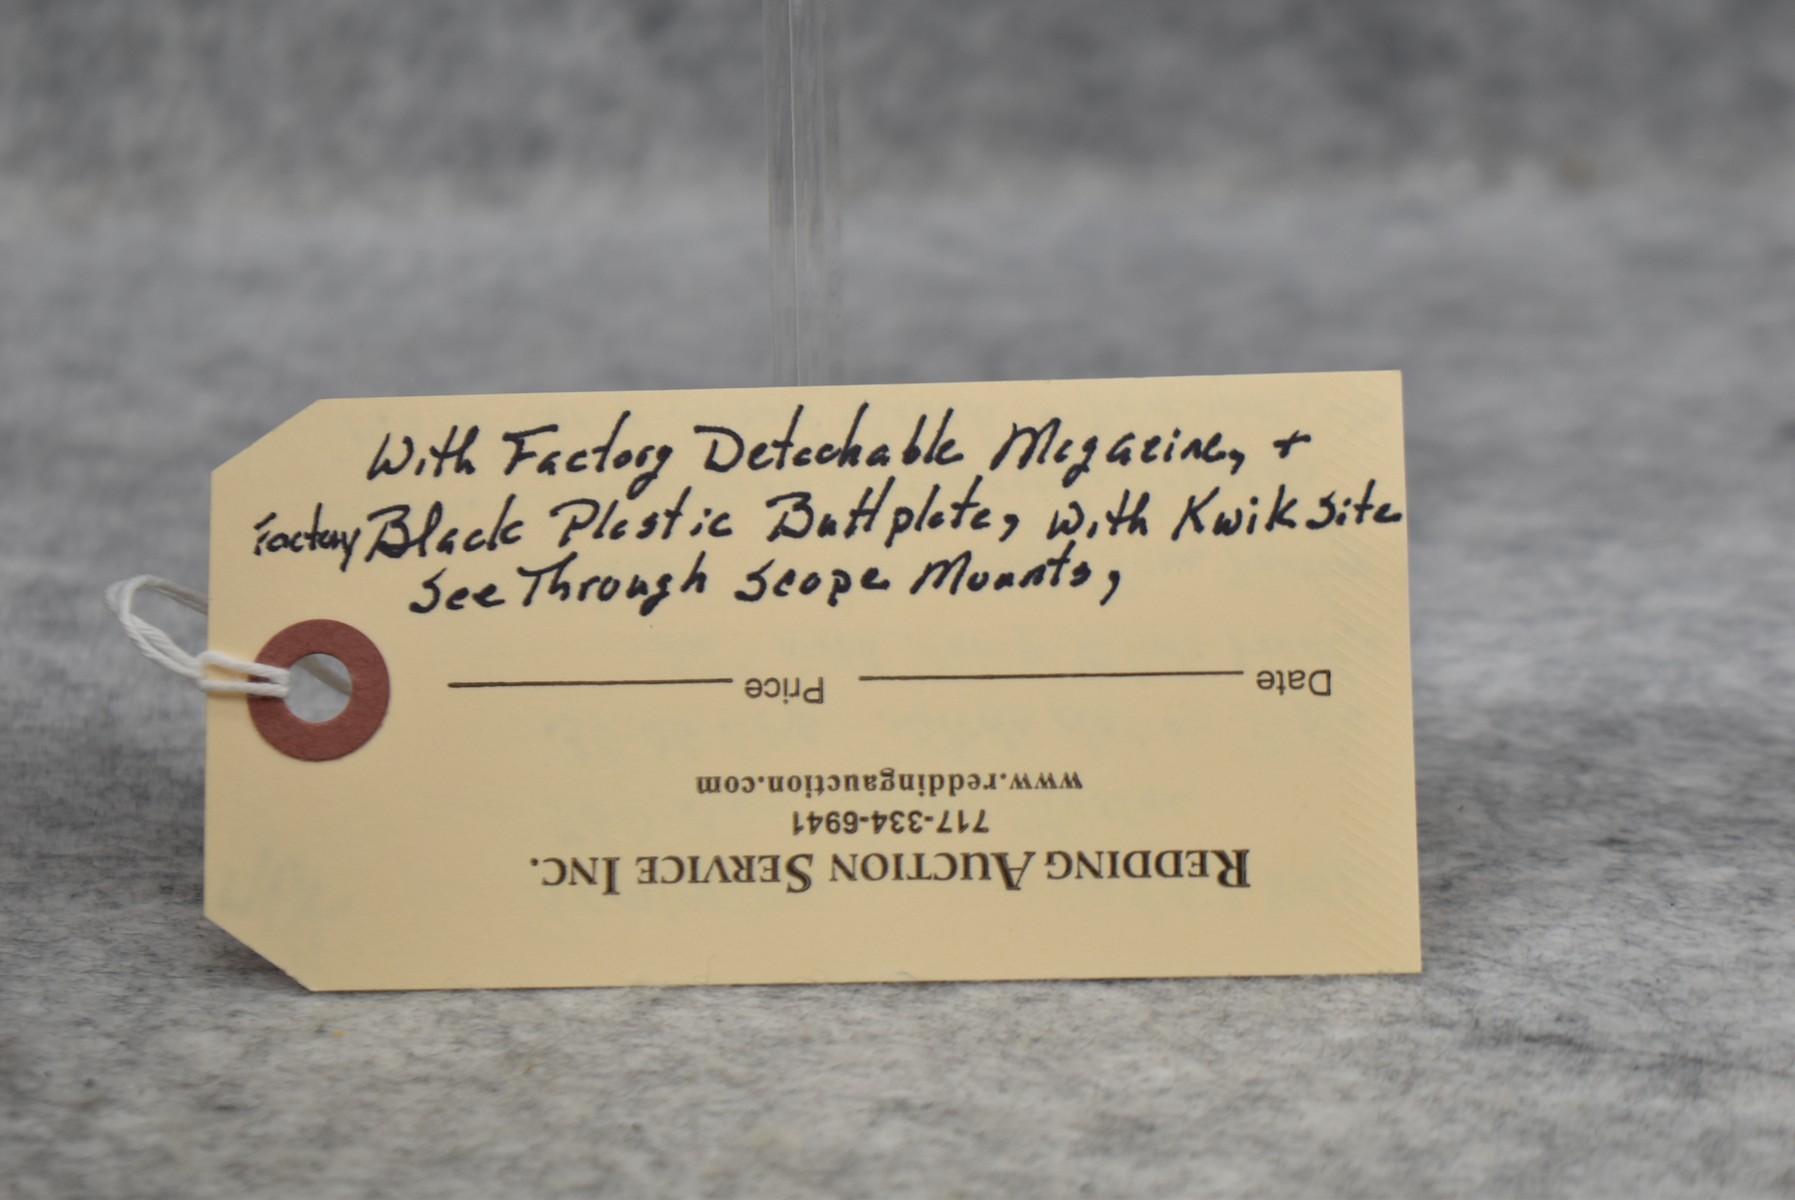 With Factory Detachable Magazine, +
Factory Black Plastic Buttplate, with Kwik Site
See Through Scope Mounts,
Date Price
www.reddingauction.com
717-334-6941
REDDING AUCTION SERVICE INC.